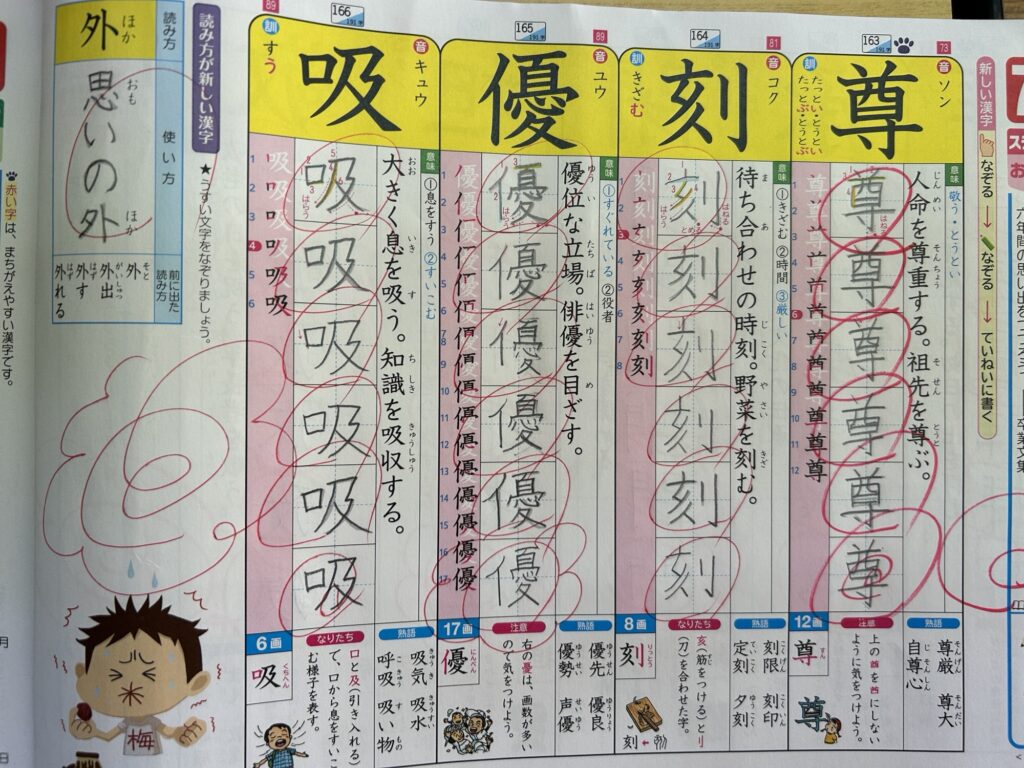 新しい漢字
なぞる → なぞる → ていねいに書く
163
191字
73
音 ソン
訓 たっとい・とうとい
たっとぶ・とうとぶ
尊
意味 敬う・とうとい
人命を尊重する。祖先を尊ぶ。
尊
尊
尊
尊
尊
尊
12画
尊
注意
上の酋を酉にしない
ように気をつけよう。
熟語
尊厳 尊大
自尊心
164
191字
81
音 コク
訓 きざむ
刻
意味 ①きざむ ②時間 ③厳しい
待ち合わせの時刻。野菜を刻む。
刻
刻
刻
刻
刻
刻
8画
刻
りっとう
なりたち
亥(筋をつける)と刂
(刀)を合わせた字。
熟語
刻限 刻印
定刻 夕刻
165
191字
89
音 ユウ
優
意味 ①すぐれている ②役者
優位な立場。俳優を目ざす。
優
優
優
優
優
優
17画
優
にんべん
注意
右の憂は、画数が多い
ので気をつけよう。
熟語
優先 優良
優勢 声優
166
191字
89
音 キュウ
訓 すう
吸
意味 ①息をすう ②すいこむ
大きく息を吸う。知識を吸収する。
吸
吸
吸
吸
吸
吸
6画
吸
くちへん
なりたち
口と及(引き入れる)
で、口から息をすいこ
む様子を表す。
熟語
吸気 吸水
呼吸 吸い物
読み方が新しい漢字
★うすい文字をなぞりましょう。
読み方
使い方
前に出た読み方
外
ほか
思いの外
外
外出
外す
外れる
梅
赤い字は、まちがえやすい漢字です。